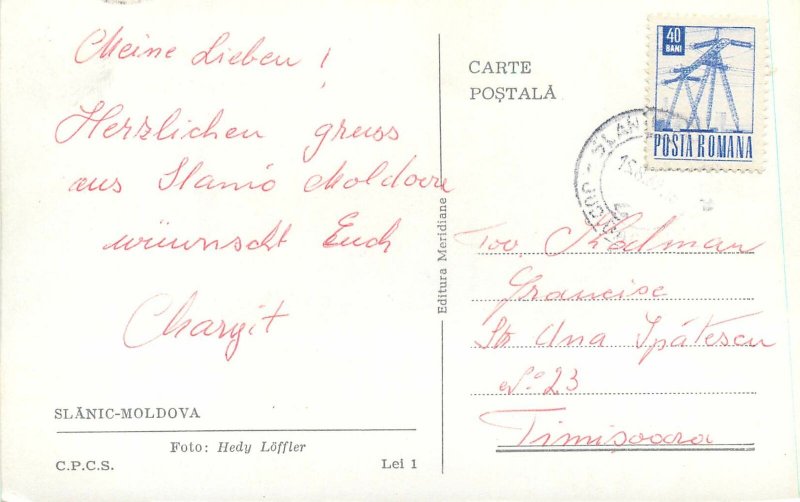 Meine Lieben !
Herzlichen gruss
aus Slanic Moldova
wünscht Euch
Margit
SLĂNIC-MOLDOVA
Foto: Hedy Löffler
C.P.C.S. Lei 1
Editura Meridiane
CARTE
POȘTALĂ
40
BANI
POSTA ROMANA
Tov. Kelman
Francisc
Str Ana Ipătescu
No 23
Timișoara